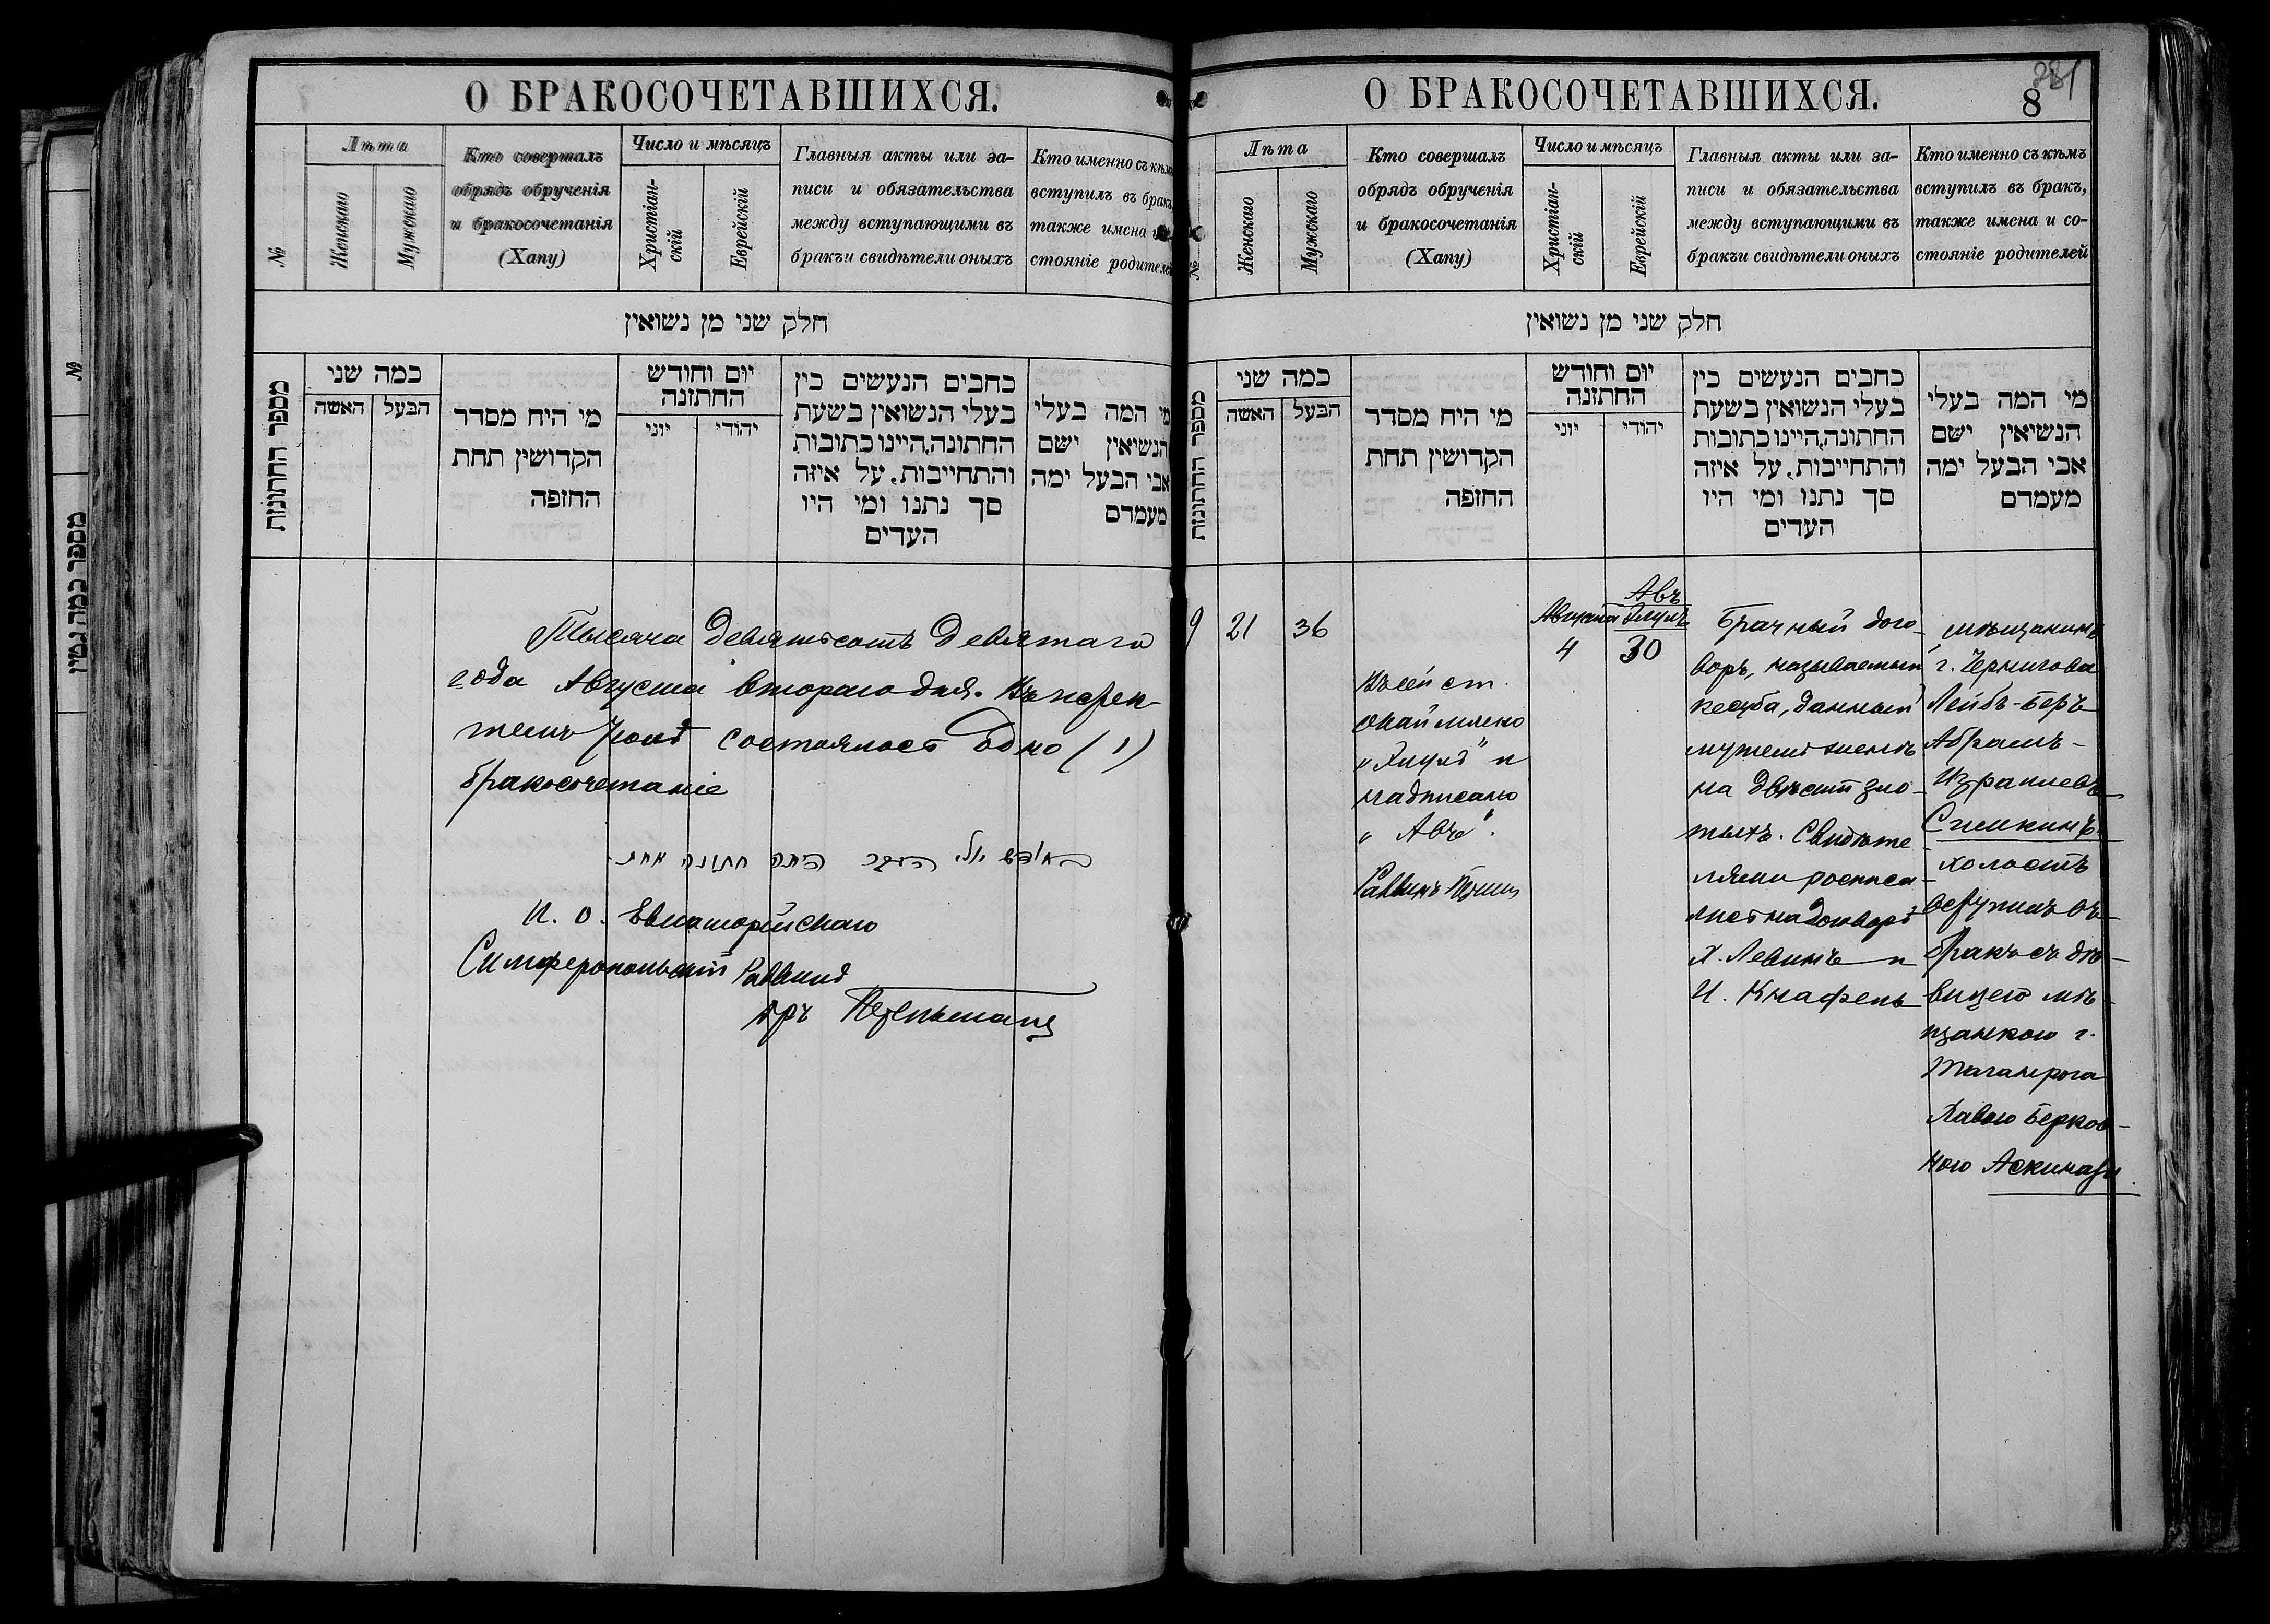 О БРАКОСОЧЕТАВШИХСЯ.
№
Лѣта
Женскаго
Мужскаго
Кто совершалъ
обрядъ обрученія
и бракосочетанія
(Хапу)
Число и мѣсяцъ
Христіан-
скій
Еврейскій
Главныя акты или за-
писи и обязательства
между вступающими въ
бракъ и свидѣтели оныхъ
Кто именно съ кѣмъ
вступилъ въ бракъ,
также имена
стояніе родителей
חלק שני מן נשואין
מספר החתונות
כמה שני
האשה
הבעל
מי היח מסדר
הקדושין תחת
החזפה
יום וחודש
החתזנה
יוני
יהודי
כחבים הנעשים כין
בעלי הנשואין בשעת
החתונה,היינו כתובות
והתחייבות. על איזה
סך נתנו ומי היו
העדים
מי המה בעלי
הנשיאין ישם
אבי הבעל ימה
מעמדם
Тысяча девятьсотъ девятаго
года Августа второго дня. Въ истек-
шемъ Іюлѣ состоялось одно (1)
бракосочетаніе
בחודש יולי העבר היתה חתונה אחת
И. О. Евпаторійскаго
Симферопольскій Раввинъ
О БРАКОСОЧЕТАВШИХСЯ.
281
8
№
Лѣта
Женскаго
Мужскаго
Кто совершалъ
обрядъ обрученія
и бракосочетанія
(Хапу)
Число и мѣсяцъ
Христіан-
скій
Еврейскій
Главныя акты или за-
писи и обязательства
между вступающими въ
бракъ и свидѣтели оныхъ
Кто именно съ кѣмъ
вступилъ въ бракъ,
также имена и со-
стояніе родителей
חלק שני מן נשואין
מספר החתונות
כמה שני
האשה
הבעל
מי היח מסדר
הקדושין תחת
החזפה
יום וחודש
החתזנה
יוני
יהודי
כחבים הנעשים כין
בעלי הנשואין בשעת
החתונה,היינו כתובות
והתחייבות. על איזה
סך נתנו ומי היו
העדים
מי המה בעלי
הנשיאין ישם
אבי הבעל ימה
מעמדם
9
21
36
Въ сей ст.
окаймлено
„Элулъ" и
надписано
„Авъ".
Раввинъ
Августа
4
Авъ
Элулъ
30
Брачный дого-
воръ, называемый
кесуба, данный
мужемъ женѣ
на двѣсти зло-
тыхъ. Свидѣте
лями росписа-
лись на договорѣ
Х. Левинъ и
И. Кнафель
мѣщанинъ
г. Чернигова
Лейбъ-Беръ
Абрамъ-
Израилевъ
Симкинъ
холостъ
вступилъ въ
бракъ съ дѣ-
вицею мѣ-
щанкою г.
Таганрога
Хавою Берков-
ною Аскинази.